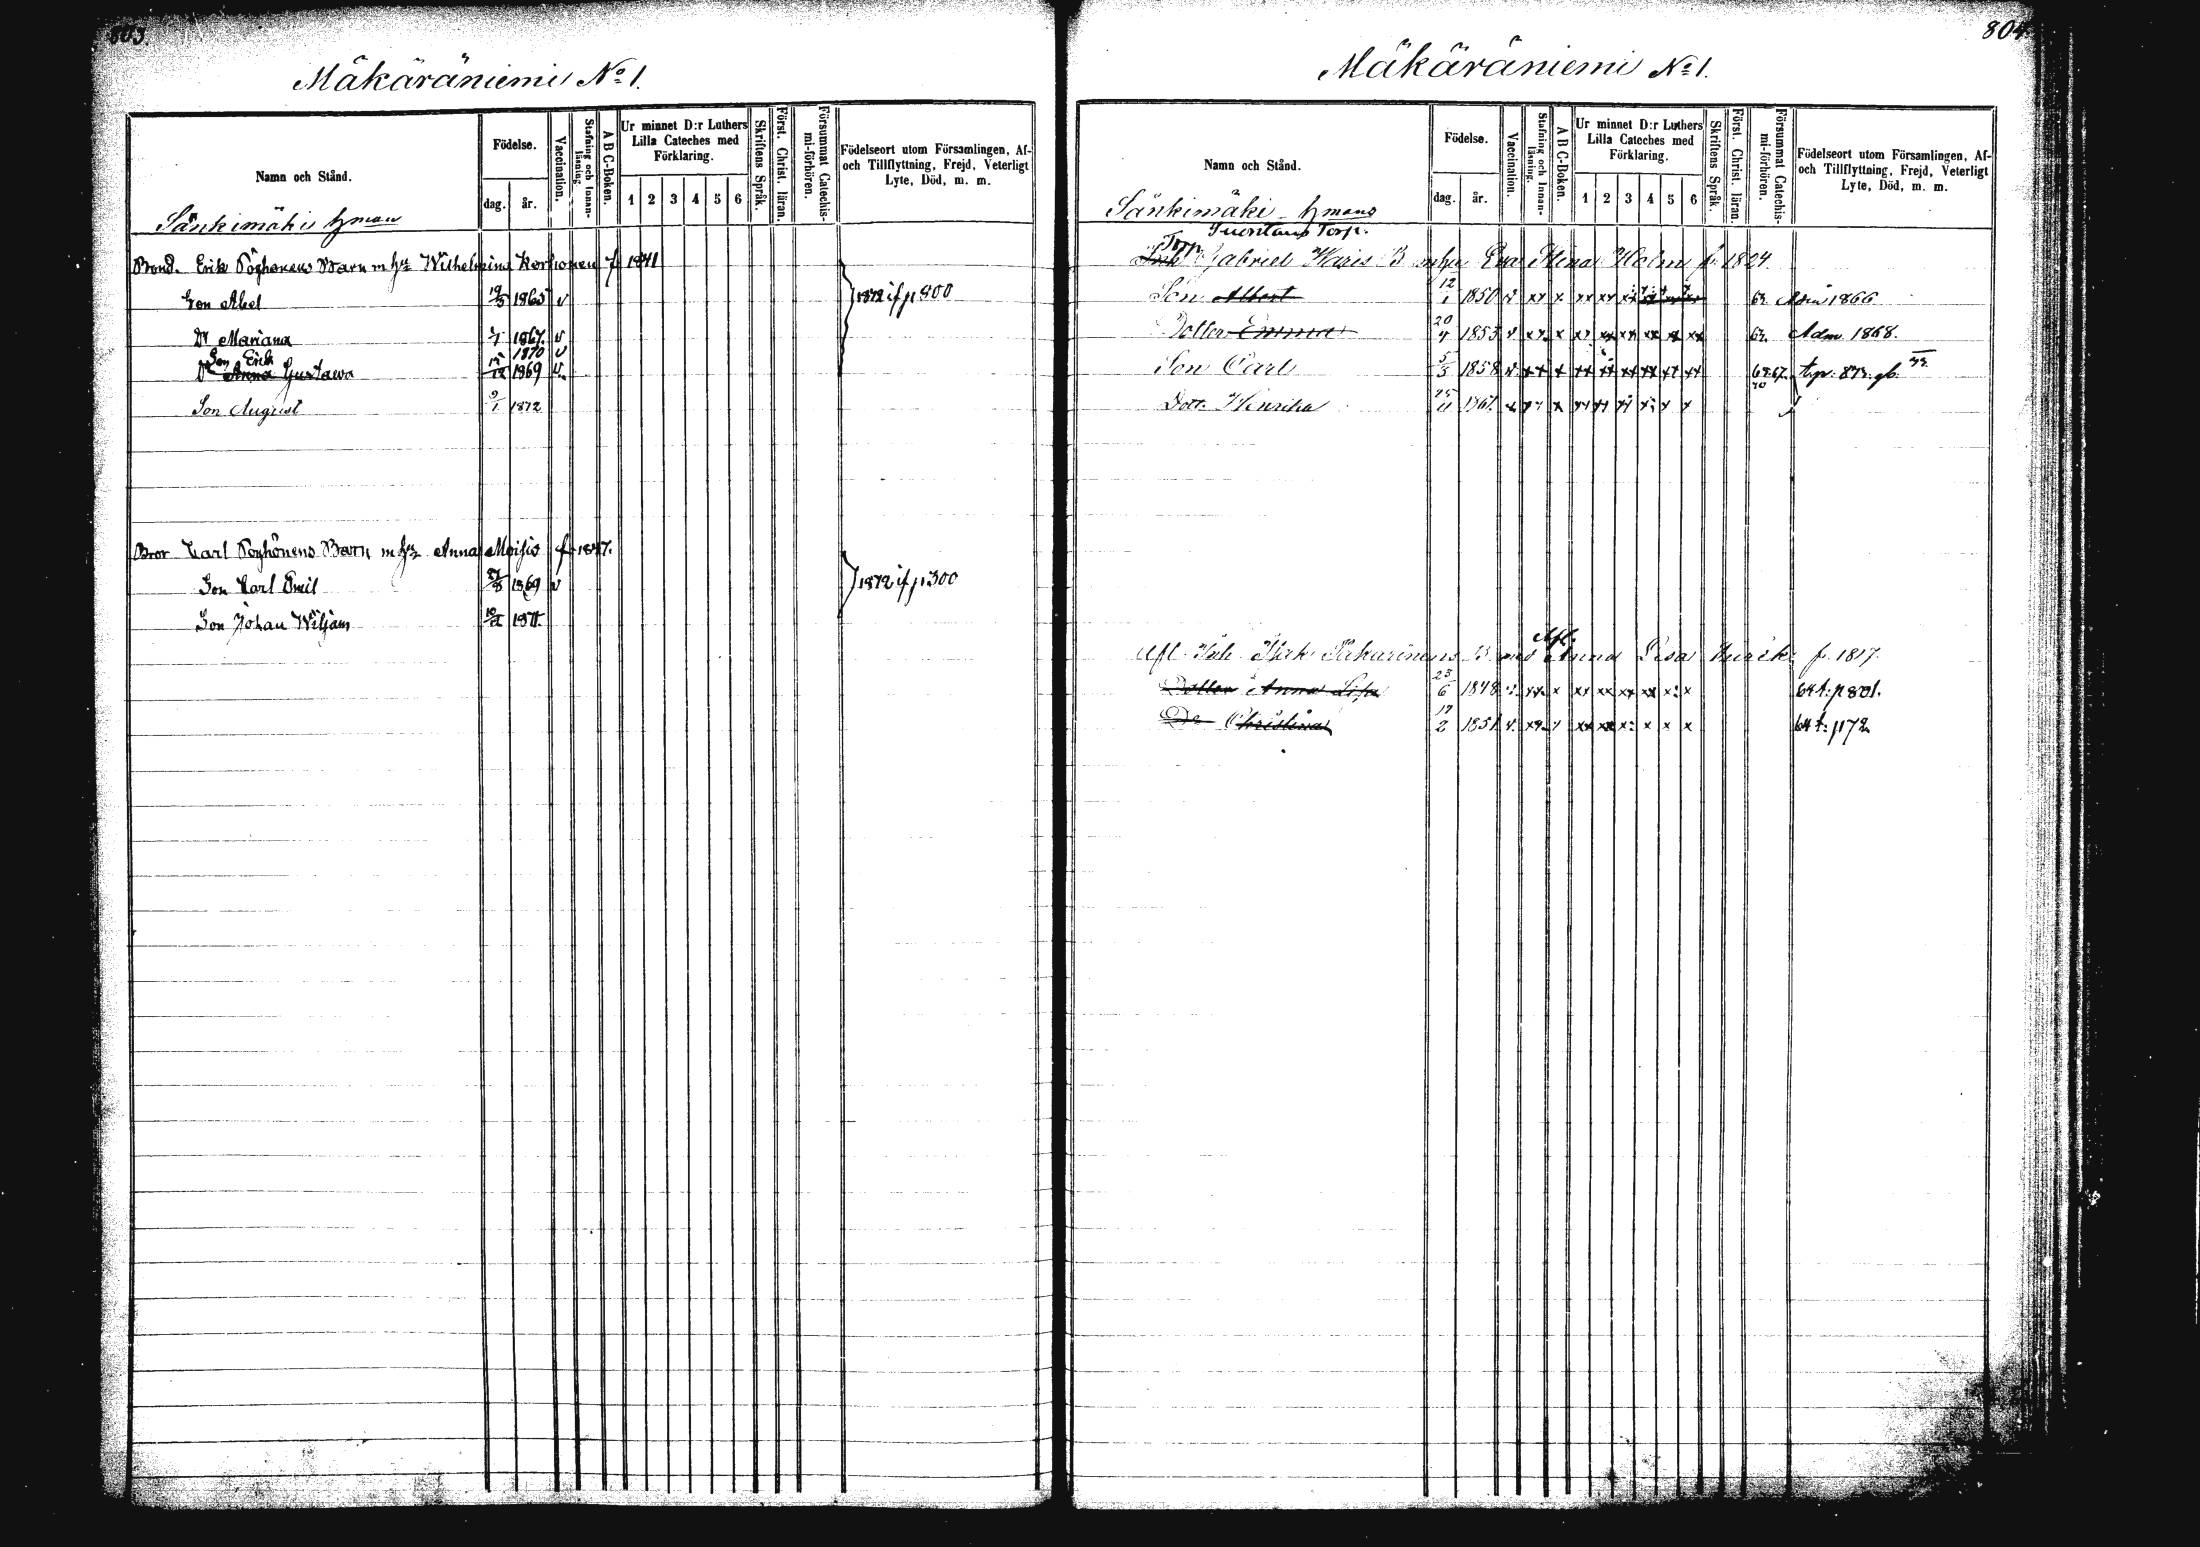 803.
Mäkäräniemi No 1.
Namn och Stånd.
Födelse.
dag. år.
Vaccination.
Stafning och Innanläsning.
A B C-Boken.
Ur minnet D:r Luthers Lilla Cateches med Förklaring.
1 2 3 4 5 6
Skriftens Språk.
Först. Christ. läran.
Försummat Catechismi-förhören.
Födelseort utom Församlingen, Af- och Tillflyttning, Frejd, Veterligt Lyte, Död, m. m.
Sänkimäki hman
Bond. Erik Pöyhönens Barn m hu Wilhelmina Korhonen f 1841
Son Abel 19/3 1865 v 1872 if p 800
Dr Mariana 1/1 1867 v
Son Erik 1870 v
Dr Anna Gustava 1869 v
Son August 9/1 1872
Bror Carl Pöyhönens Barn m hu Anna Moisio f 1847.
Son Carl Emil 1869 v 1872 if p 300
Son Johan Wiljam 1871.
804
Mäkäräniemi No 1.
Namn och Stånd.
Födelse.
dag. år.
Vaccination.
Stafning och Innanläsning.
A B C-Boken.
Ur minnet D:r Luthers Lilla Cateches med Förklaring.
1 2 3 4 5 6
Skriftens Språk.
Först. Christ. läran.
Försummat Catechismi-förhören.
Födelseort utom Församlingen, Af- och Tillflyttning, Frejd, Veterligt Lyte, Död, m. m.
Sänkimäki hmans
Torp.
Torp. Gabriel Haris B m hu Eva Stina Holm f 1824.
Son Albert 12/1 1850 v xx x xx xx Adm 1866
Dotter Emma 20/4 1853 v xx x Adm. 1868.
Son Carl 5/3 1858 v xx x xx xx xx xx xx xx 65.67. 70
Dott. Henrika 25/11 1861
Afl.
Afl Inh Isak Pakarinens B med Anna Lisa Kurik f. 1817.
Dotter Anna Lisa 23/6 1848 v. xx x xx xx xx xx x: x 64 t: p 801.
Dr Christina 17/2 1851 v. 64 t: p 172